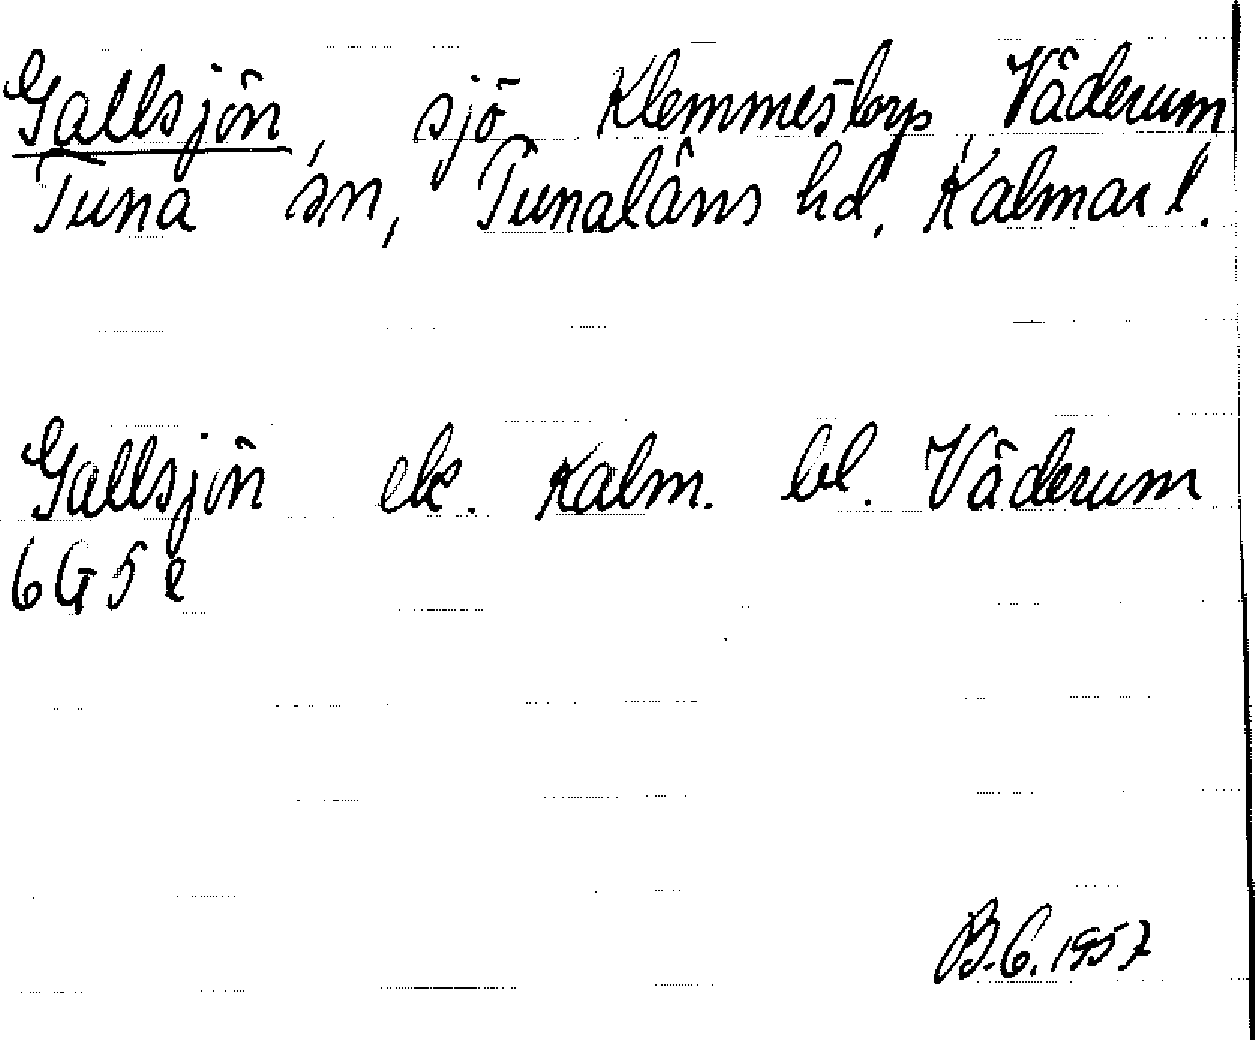 Gallsjön, sjö, Klemmestorp, Väderum
Tuna sn, Tunaläns hd, Kalmar l.
Gallsjön ek. Kalm. bl. Väderum
6G 5e
B.C. 1957